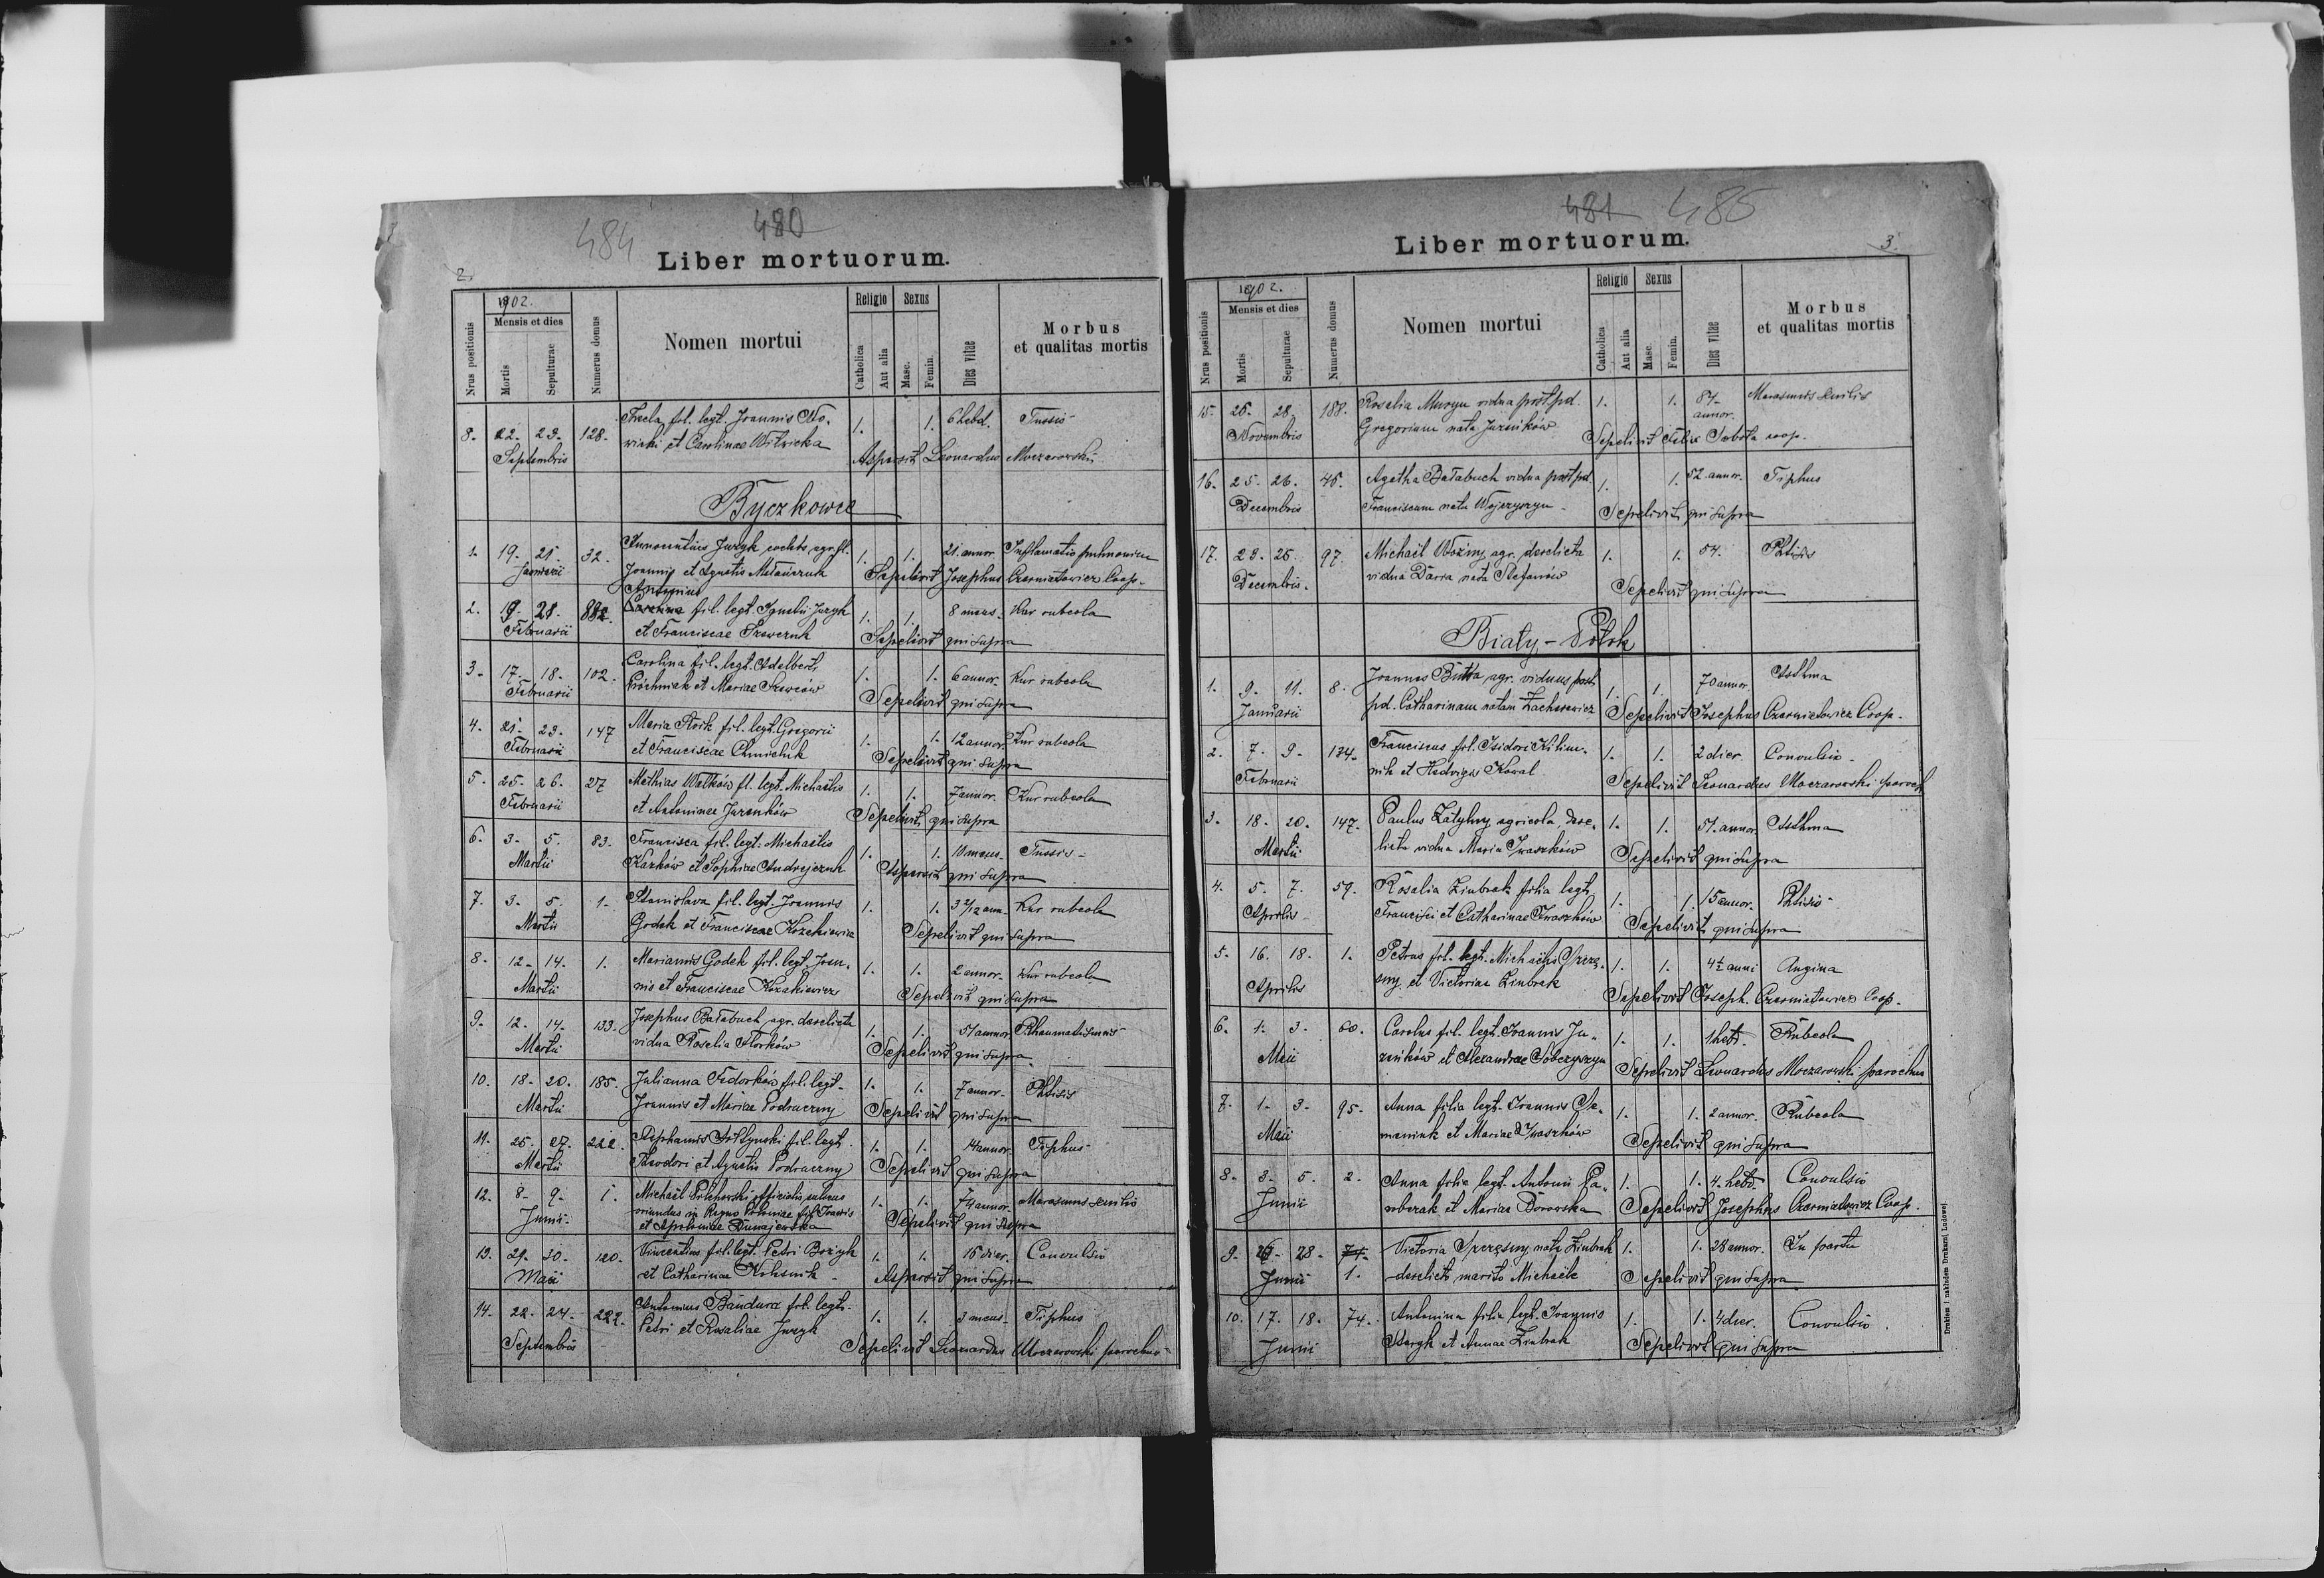 484 480
Liber mortuorum.
2.
1902.
Nrus positionis
Mensis et dies
Mortis
Sepulturae
Numerus domus
Nomen mortui
Religio
Catholica
Aut alia
Sexus
Masc.
Femin.
Dies vitae
Morbus
et qualitas mortis
8. 22. 23. 128. Thecla fil. legt. Joannis No- 1. 1. 6 hebd. Tussis
Septembris wicki et Carolinae Witwicka Aspersit Leonardus Moczarowski
Byczkowce
1. 19. 21. 32. Innocentius Juzyk coelebs agr. fil. 1. 1. 21. annor. Inflamatio pulmonium
Januarii Joannis et Agnetis Sepelivit Josephus Czerniatowicz Coop.
Antonius
2. 19. 21. fil. legt. Ignatii Juzyk 1. 1. 8 mens. Kur rubeola
Februarii et Franciscae Szewczuk Sepelivit qui supra
3. 17. 18. 102. Carolina fil. legt. Adelberti 1. 1. 6 annor. Kur rubeola
Februarii Próchniak et Mariae Szewców Sepelivit qui supra
4. 21. 23. 147 Maria fil. legt. Gregorii 1. 1. 12 annor. Kur rubeola
Februarii et Franciscae Chmieluk Sepelivit qui supra
5. 25. 26. 27 Mathias Watków fil. legt. Michaëlis 1. 1. 7 annor. Kur rubeola
Februarii et Antoninae Jurenków Sepelivit qui supra
6. 3. 5. 83. Francisca fil. legt. Michaëlis 1. 1. 10 mens. Tussis
Martii Karków et Sophiae Andrejczuk Aspersit qui supra
7. 3. 5. 1. Stanislava fil. legt. Joannis 1. 1. 3 ann. Kur rubeola
Martii Godek et Franciscae Kozakiewicz Sepelivit qui supra
8. 12. 14. 1. Mariannus Godek fil. legt. Joan- 1. 1. 2 annor. Kur rubeola
Martii nis et Franciscae Kozakiewicz Sepelivit qui supra
9. 12. 14. 133. Josephus Bałabuch agr. derelicta 1. 1. 51 annor. Rheumatismus
Martii vidua Rosalia Florków Sepelivit qui supra
10. 18. 20. 185. Julianna Fedorków fil. legt. 1. 1. 7 annor. Phtisis
Martii Joannis et Mariae Podruczny Sepelivit qui supra
11. 25. 27. 222. Stephanus Sołtynski fil. legt. 1. 1. 14 annor. Tiphus
Martii Theodori et Agnetis Podruczny Sepelivit qui supra
12. 8. 9. 1. Michaël officialis 1. 1. 74 annor. Marasmus senilis
Junii oriundus in Regno Poloniae fil. Joannis Sepelivit qui supra
et Apoloniae Dunajewska
13. 29. 30. 120. Vincentius fil. legt. Petri Bożyk 1. 1. 16 dier. Convulsio
Maii et Catharinae Kolesnik Aspersit qui supra
14. 22. 24. 222. Antonius Bandura fil. legt. 1. 1. 3 mens. Tiphus
Septembris Petri et Rosaliae Juzyk Sepelivit Leonardus Moczarowski parochus
481 485
Liber mortuorum.
3.
1902.
Nrus positionis
Mensis et dies
Mortis
Sepulturae
Numerus domus
Nomen mortui
Religio
Catholica
Aut alia
Sexus
Masc.
Femin.
Dies vitae
Morbus
et qualitas mortis
15. 26. 28. 188. Rosalia vidua post pd. 1. 1. 87 annor. Marasmus senilis
Novembris Gregorium nata Jureników Sepelivit Felix Sobota coop.
16. 25. 26. 45. Agatha Bałabuch vidua post pd. 1. 1. 52 annor. Tiphus
Decembris Franciscum nata Sepelivit qui supra
17. 23. 25. 97. Michaël Woźny agr. derelicta 1. 1. 54. Phtisis
Decembris. vidua Daria nata Stefanów Sepelivit qui supra
Biały-Potok
1. 9. 11. 8. Joannes Butta agr. viduus post 1. 1. 70 annor. Asthma
Januarii pd. Catharinam natam Zacharewicz Sepelivit Josephus Czerniatowicz Coop.
2. 7. 9. 134. Franciscus fil. Isidori Klim- 1. 1. 2 dier. Convulsio
Februarii nik et Hedvigis Kowal Sepelivit Leonardus Moczarowski paroch
3. 18. 20. 147. Paulus Zatylny agricola, dere- 1. 1. 51. annor. Asthma
Martii licta vidua Maria Iwaszków Sepelivit qui supra
4. 5. 7. 59. Rosalia Ziubrak filia legt. 1. 1. 15 annor. Phtisis
Aprilis Francisci et Catharinae Iwaszków Sepelivit qui supra
5. 16. 18. 1. Petrus fil. legt. Michaëlis Szczę- 1. 1. 4½ anni Angina
Aprilis sny et Victoriae Ziubrak Sepelivit Joseph. Czerniatowicz Coop.
6. 1. 3. 60. Carolus fil. legt. Joannis Ju- 1. 1. 1 hebd. Rubeola
Maii reników et Alexandrae Sobczyszyn Sepelivit Leonardus Moczarowski parochus
7. 1. 3. 95. Anna filia legt. Joannis Se- 1. 1. 2 annor. Rubeola
Maii maniuk et Mariae Iwaszków Sepelivit qui supra
8. 3. 5. 2. Anna filia legt. Antonii Pa- 1. 1. 4. hebd. Convulsio
Junii robczak et Mariae Borowska Sepelivit Josephus Czerniatowicz Coop.
9. 26. 28. 74. Victoria Szczęsny nata Ziubrak 1. 1. 28 annor. In partu
Junii 1. derelicto marito Michaële Sepelivit qui supra
10. 17. 18. 74. Antonina filia legt. Joannis 1. 1. 4 dier. Convulsio
Junii et Annae Ziubrak Sepelivit qui supra
Drukiem i nakładem Drukarni Ludowej